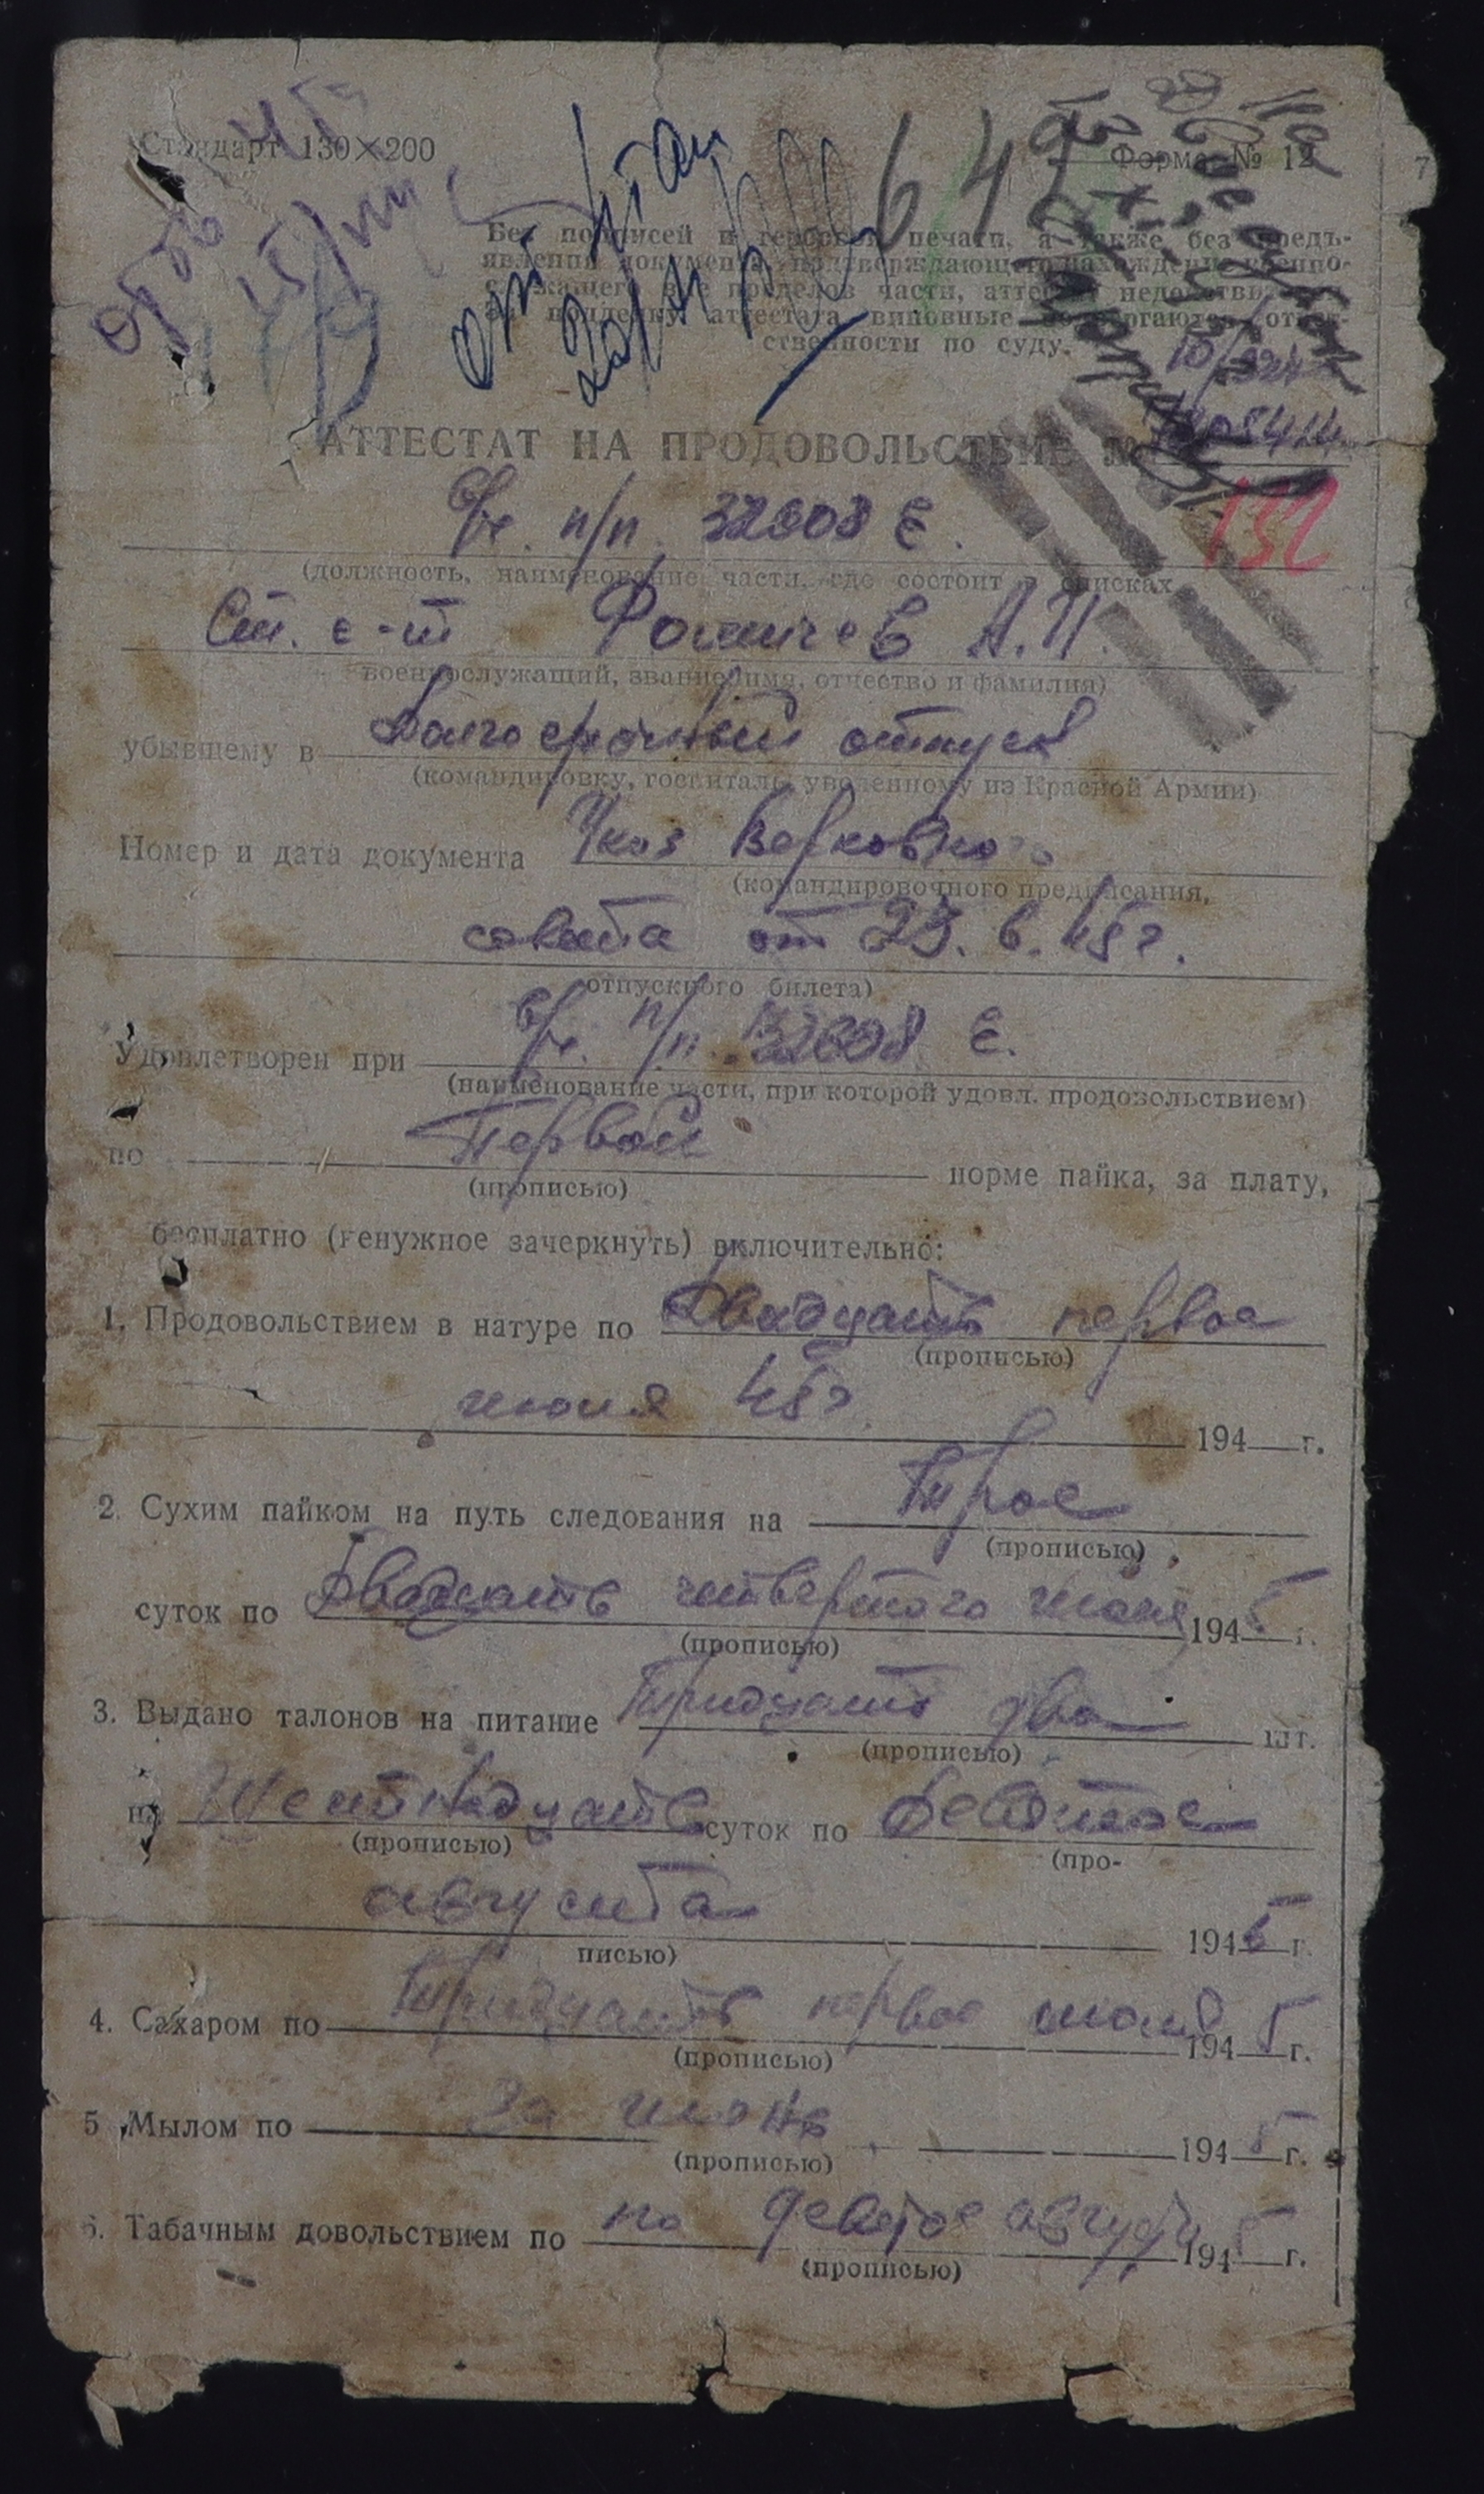 Стандарт 130×200
Форма № 12
647
Без подписей и гербовой печати, а также без предъ-
явления документа, подтверждающего нахождение военно-
служащего вне пределов части, аттестат недействителен.
За подделку аттестата виновные подвергаются ответ-
ственности по суду.
АТТЕСТАТ НА ПРОДОВОЛЬСТВИЕ №
132
в/ч. п/п. 32808 Е.
(должность, наименование части, где состоит в списках,
Ст. с-т Фомичев А. П.
военнослужащий, звание, имя, отчество и фамилия)
убывшему в Долгосрочный отпуск
(командировку, госпиталь, уволенному из Красной Армии)
Номер и дата документа Указ Верховного
(командировочного предписания,
совета от 23. 6. 45 г.
отпускного билета)
Удовлетворен при в/ч. п/п. 32808 Е.
(наименование части, при которой удовл. продовольствием)
по Первой норме пайка, за плату,
(прописью)
бесплатно (ненужное зачеркнуть) включительно:
1. Продовольствием в натуре по Двадцать первое
(прописью)
июля 45 г. 194 г.
2. Сухим пайком на путь следования на Трое
(прописью)
суток по Двадцать четвертого июля 1945 г.
(прописью)
3. Выдано талонов на питание Тридцать два шт.
(прописью)
на Шестнадцать суток по Девятое
(прописью) (про-
августа 1945 г.
писью)
4. Сахаром по Тридцать первое июля 1945 г.
(прописью)
5. Мылом по За июнь 1945 г.
(прописью)
6. Табачным довольствием по по девятое августа 1945 г.
(прописью)